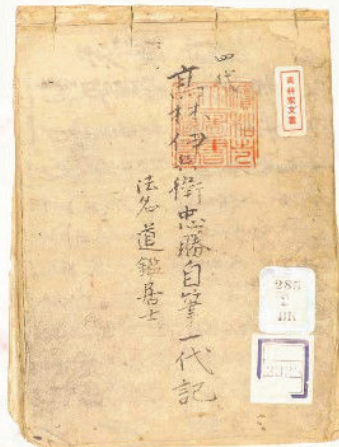 四代
高林伊兵衛忠勝自筆一代記
法名道鑑居士
高林家文書
285
2